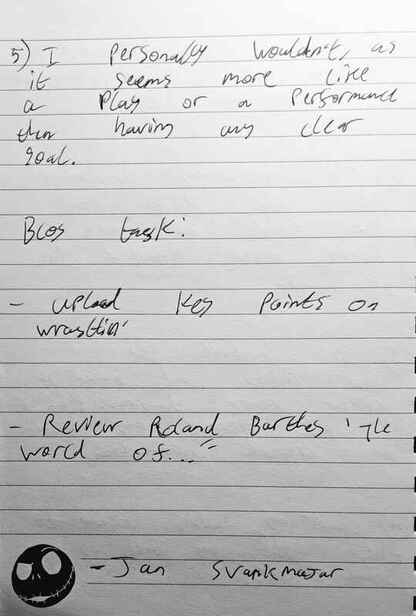 5) I personally wouldn't, as
it seems more like
a play or a performance
than having any clear
goal.
Blog task:
- upload key points on
wrestlin'
- Review Roland Barthes 'The
world of..."
- Jan Svankmajar